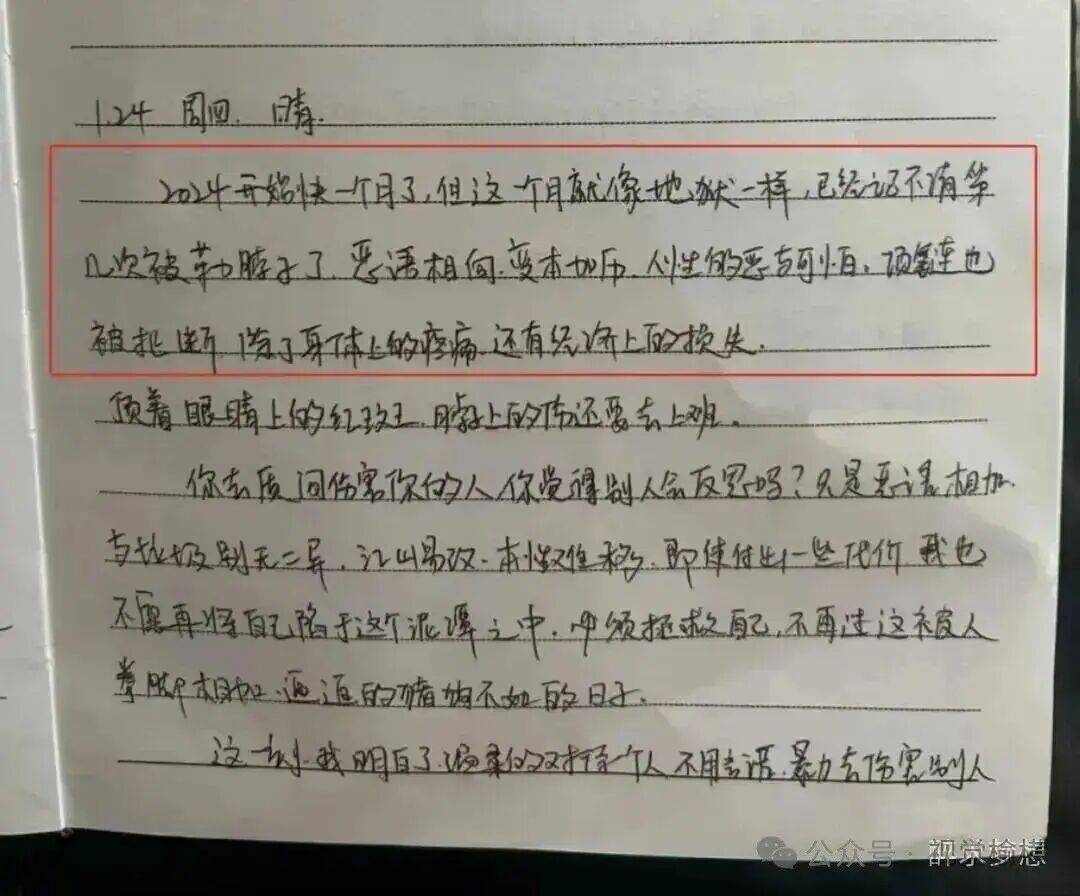 1.24 周四. 晴.
2024开始快一个月了，但这一个月就像地狱一样，已经记不清第
几次被勒脖子了，恶语相向，变本加厉，人性的恶与可怕。项链也
被扯断，除了身体上的疼痛，还有经济上的损失.
顶着眼睛上的红斑，脖子上的伤还要去上班。
你去质问伤害你的人，你觉得别人会反思吗？只是恶语相加
与垃圾别无二异，江山易改，本性难移，即使付出一些代价 我也
不愿再将自己陷于这个泥潭之中，必须拯救自己，不再过这被人
拳脚相加，逼迫的猪狗不如的日子.
这一刻，我明白了温柔的对待一个人 不用言语，暴力去伤害别人
公众号 ·